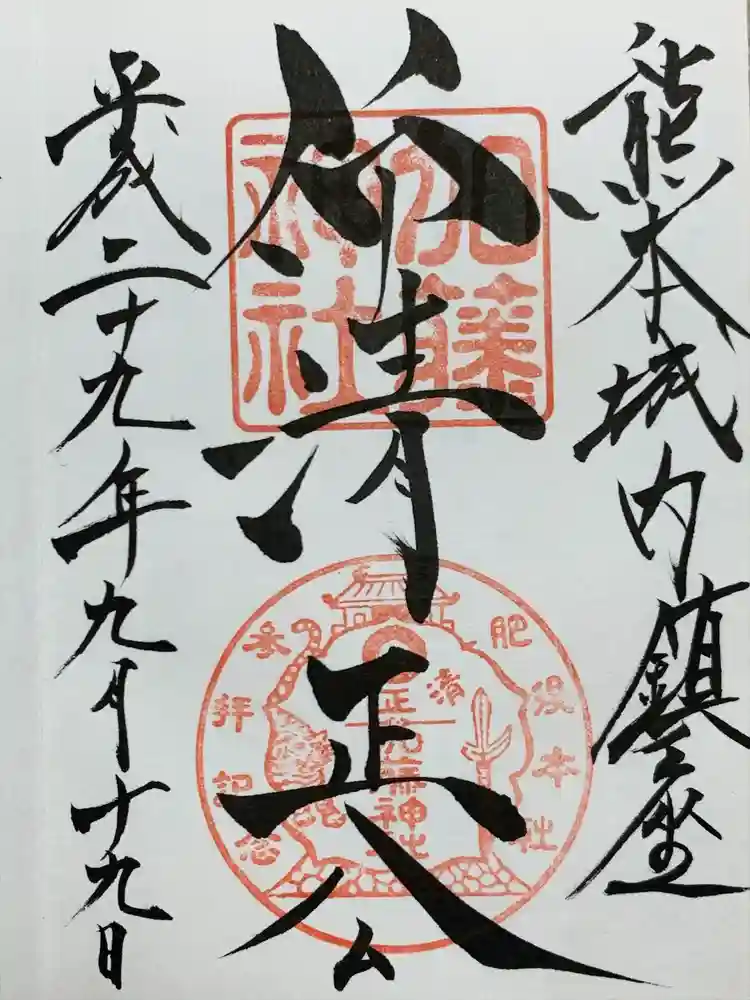 熊本城内鎮座
清正公
加藤神社
肥後本社
参拝記念
清正公
加藤神社
平成二十九年九月十九日